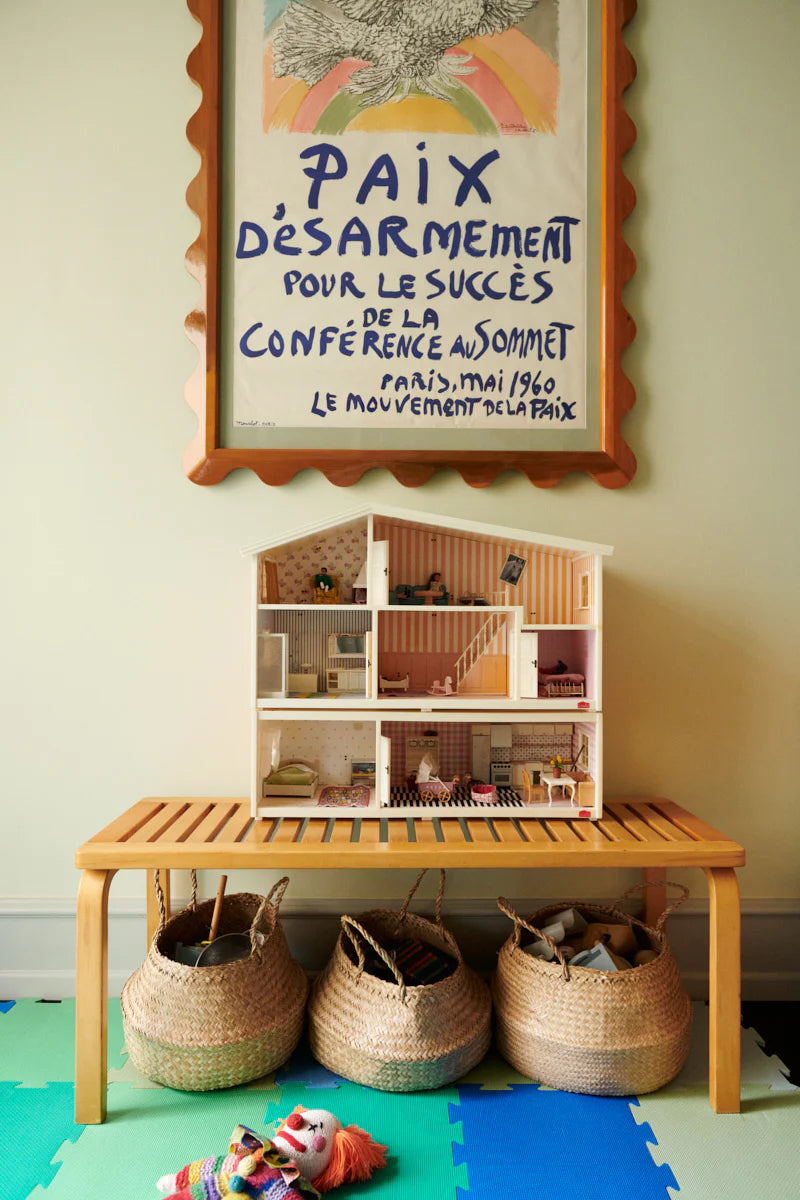 PAiX
DÉSARMEMENT
POUR LE SUCCÈS
DE LA
CONFÉRENCE AU SOMMET
PARIS, MAI 1960
LE MOUVEMENT DE LA PAIX